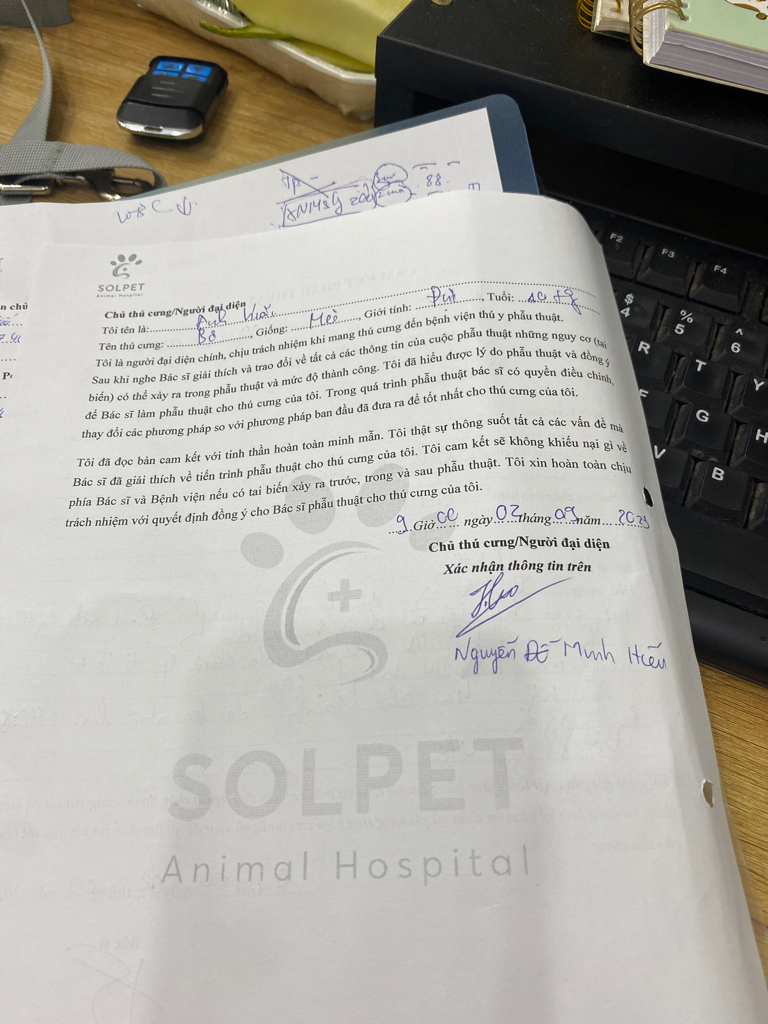 WBC ↓
88.
SOLPET
Animal Hospital
Chủ thú cưng/Người đại diện
Tôi tên là: Anh
Tên thú cưng: Bơ, Giống: Mèo, Giới tính: Đực, Tuổi: 10 tg
Tôi là người đại diện chính, chịu trách nhiệm khi mang thú cưng đến bệnh viện thú y phẫu thuật.
Sau khi nghe Bác sĩ giải thích và trao đổi về tất cả các thông tin của cuộc phẫu thuật những nguy cơ (tai
biến) có thể xảy ra trong phẫu thuật và mức độ thành công. Tôi đã hiểu được lý do phẫu thuật và đồng ý
để Bác sĩ làm phẫu thuật cho thú cưng của tôi. Trong quá trình phẫu thuật bác sĩ có quyền điều chỉnh,
thay đổi các phương pháp so với phương pháp ban đầu đã đưa ra để tốt nhất cho thú cưng của tôi.
Tôi đã đọc bản cam kết với tinh thần hoàn toàn minh mẫn. Tôi thật sự thông suốt tất cả các vấn đề mà
Bác sĩ đã giải thích về tiến trình phẫu thuật cho thú cưng của tôi. Tôi cam kết sẽ không khiếu nại gì về
phía Bác sĩ và Bệnh viện nếu có tai biến xảy ra trước, trong và sau phẫu thuật. Tôi xin hoàn toàn chịu
trách nhiệm với quyết định đồng ý cho Bác sĩ phẫu thuật cho thú cưng của tôi.
9 Giờ 00 ngày 02 tháng 09 năm
Chủ thú cưng/Người đại diện
Xác nhận thông tin trên
Nguyễn Đỗ Minh Hiếu
SOLPET
Animal Hospital
F2
F3
F4
$
4
%
5
^
6
R
T
Y
F
G
H
V
B